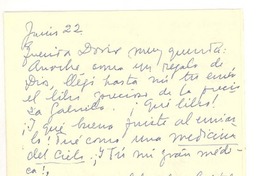 Junio 22
Querida Doris muy querida:
Anoche como un regalo de
Dios, llegó hasta mi tu envío
el libro precioso de la preciosa
Gabriela. ¡Qué libro!
¡Y qué buena fuiste al enviar
lo! Fué como una medicina
del cielo. ¡Tú mi gran médi
ca!,